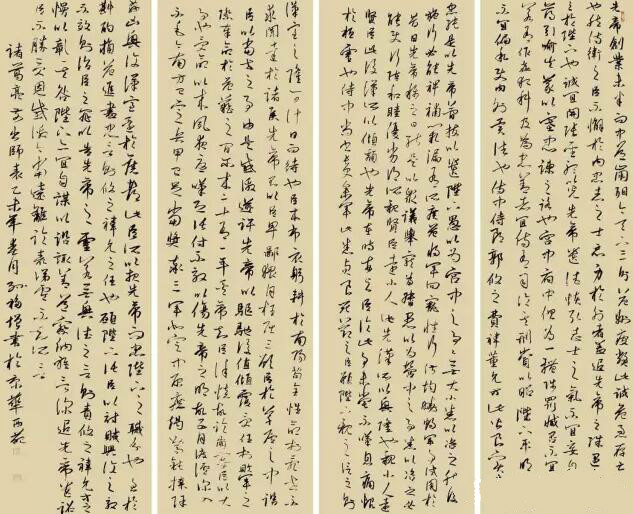 先帝創業未半而中道崩殂今天下三分益州疲敝此誠危急存亡
之秋也然侍衛之臣不懈於內忠志之士忘身於外者蓋追先帝之殊遇
欲報之於陛下也誠宜開張聖聽以光先帝遺德恢弘志士之氣不宜妄自
菲薄引喻失義以塞忠諫之路也宮中府中俱為一體陟罰臧否不宜
異同若有作奸犯科及為忠善者宜付有司論其刑賞以昭陛下平明
之理不宜偏私使內外異法也侍中侍郎郭攸之費禕董允等此皆良實
志慮忠純是以先帝簡拔以遺陛下愚以為宮中之事事無大小悉以咨之然後
施行必能裨補闕漏有所廣益將軍向寵性行淑均曉暢軍事試用於
昔日先帝稱之曰能是以眾議舉寵為督愚以為營中之事悉以咨之必
能使行陣和睦優劣得所親賢臣遠小人此先漢所以興隆也親小人遠
賢臣此後漢所以傾頹也先帝在時每與臣論此事未嘗不嘆息痛恨
於桓靈也侍中尚書長史參軍此悉貞良死節之臣願陛下親之信之則
漢室之隆可計日而待也臣本布衣躬耕於南陽苟全性命於亂世不
求聞達於諸侯先帝不以臣卑鄙猥自枉屈三顧臣於草廬之中諮
臣以當世之事由是感激遂許先帝以驅馳後值傾覆受任於敗軍之
際奉命於危難之間爾來二十有一年矣先帝知臣謹慎故臨崩寄臣以大
事也受命以來夙夜憂嘆恐付託不效以傷先帝之明故五月渡瀘深入
不毛今南方已定兵甲已足當獎率三軍北定中原庶竭駑鈍攘除
奸凶興復漢室還於舊都此臣所以報先帝而忠陛下之職分也至於
斟酌損益進盡忠言則攸之禕允之任也願陛下託臣以討賊興復之
效不效則治臣之罪以告先帝之靈若無興德之言則責攸之禕允之
慢以彰其咎陛下亦宜自謀以諮諏善道察納雅言深追先帝遺詔
臣不勝受恩感激今當遠離臨表涕零不知所云
諸葛亮出師表乙未年春月孫 書於京華西苑